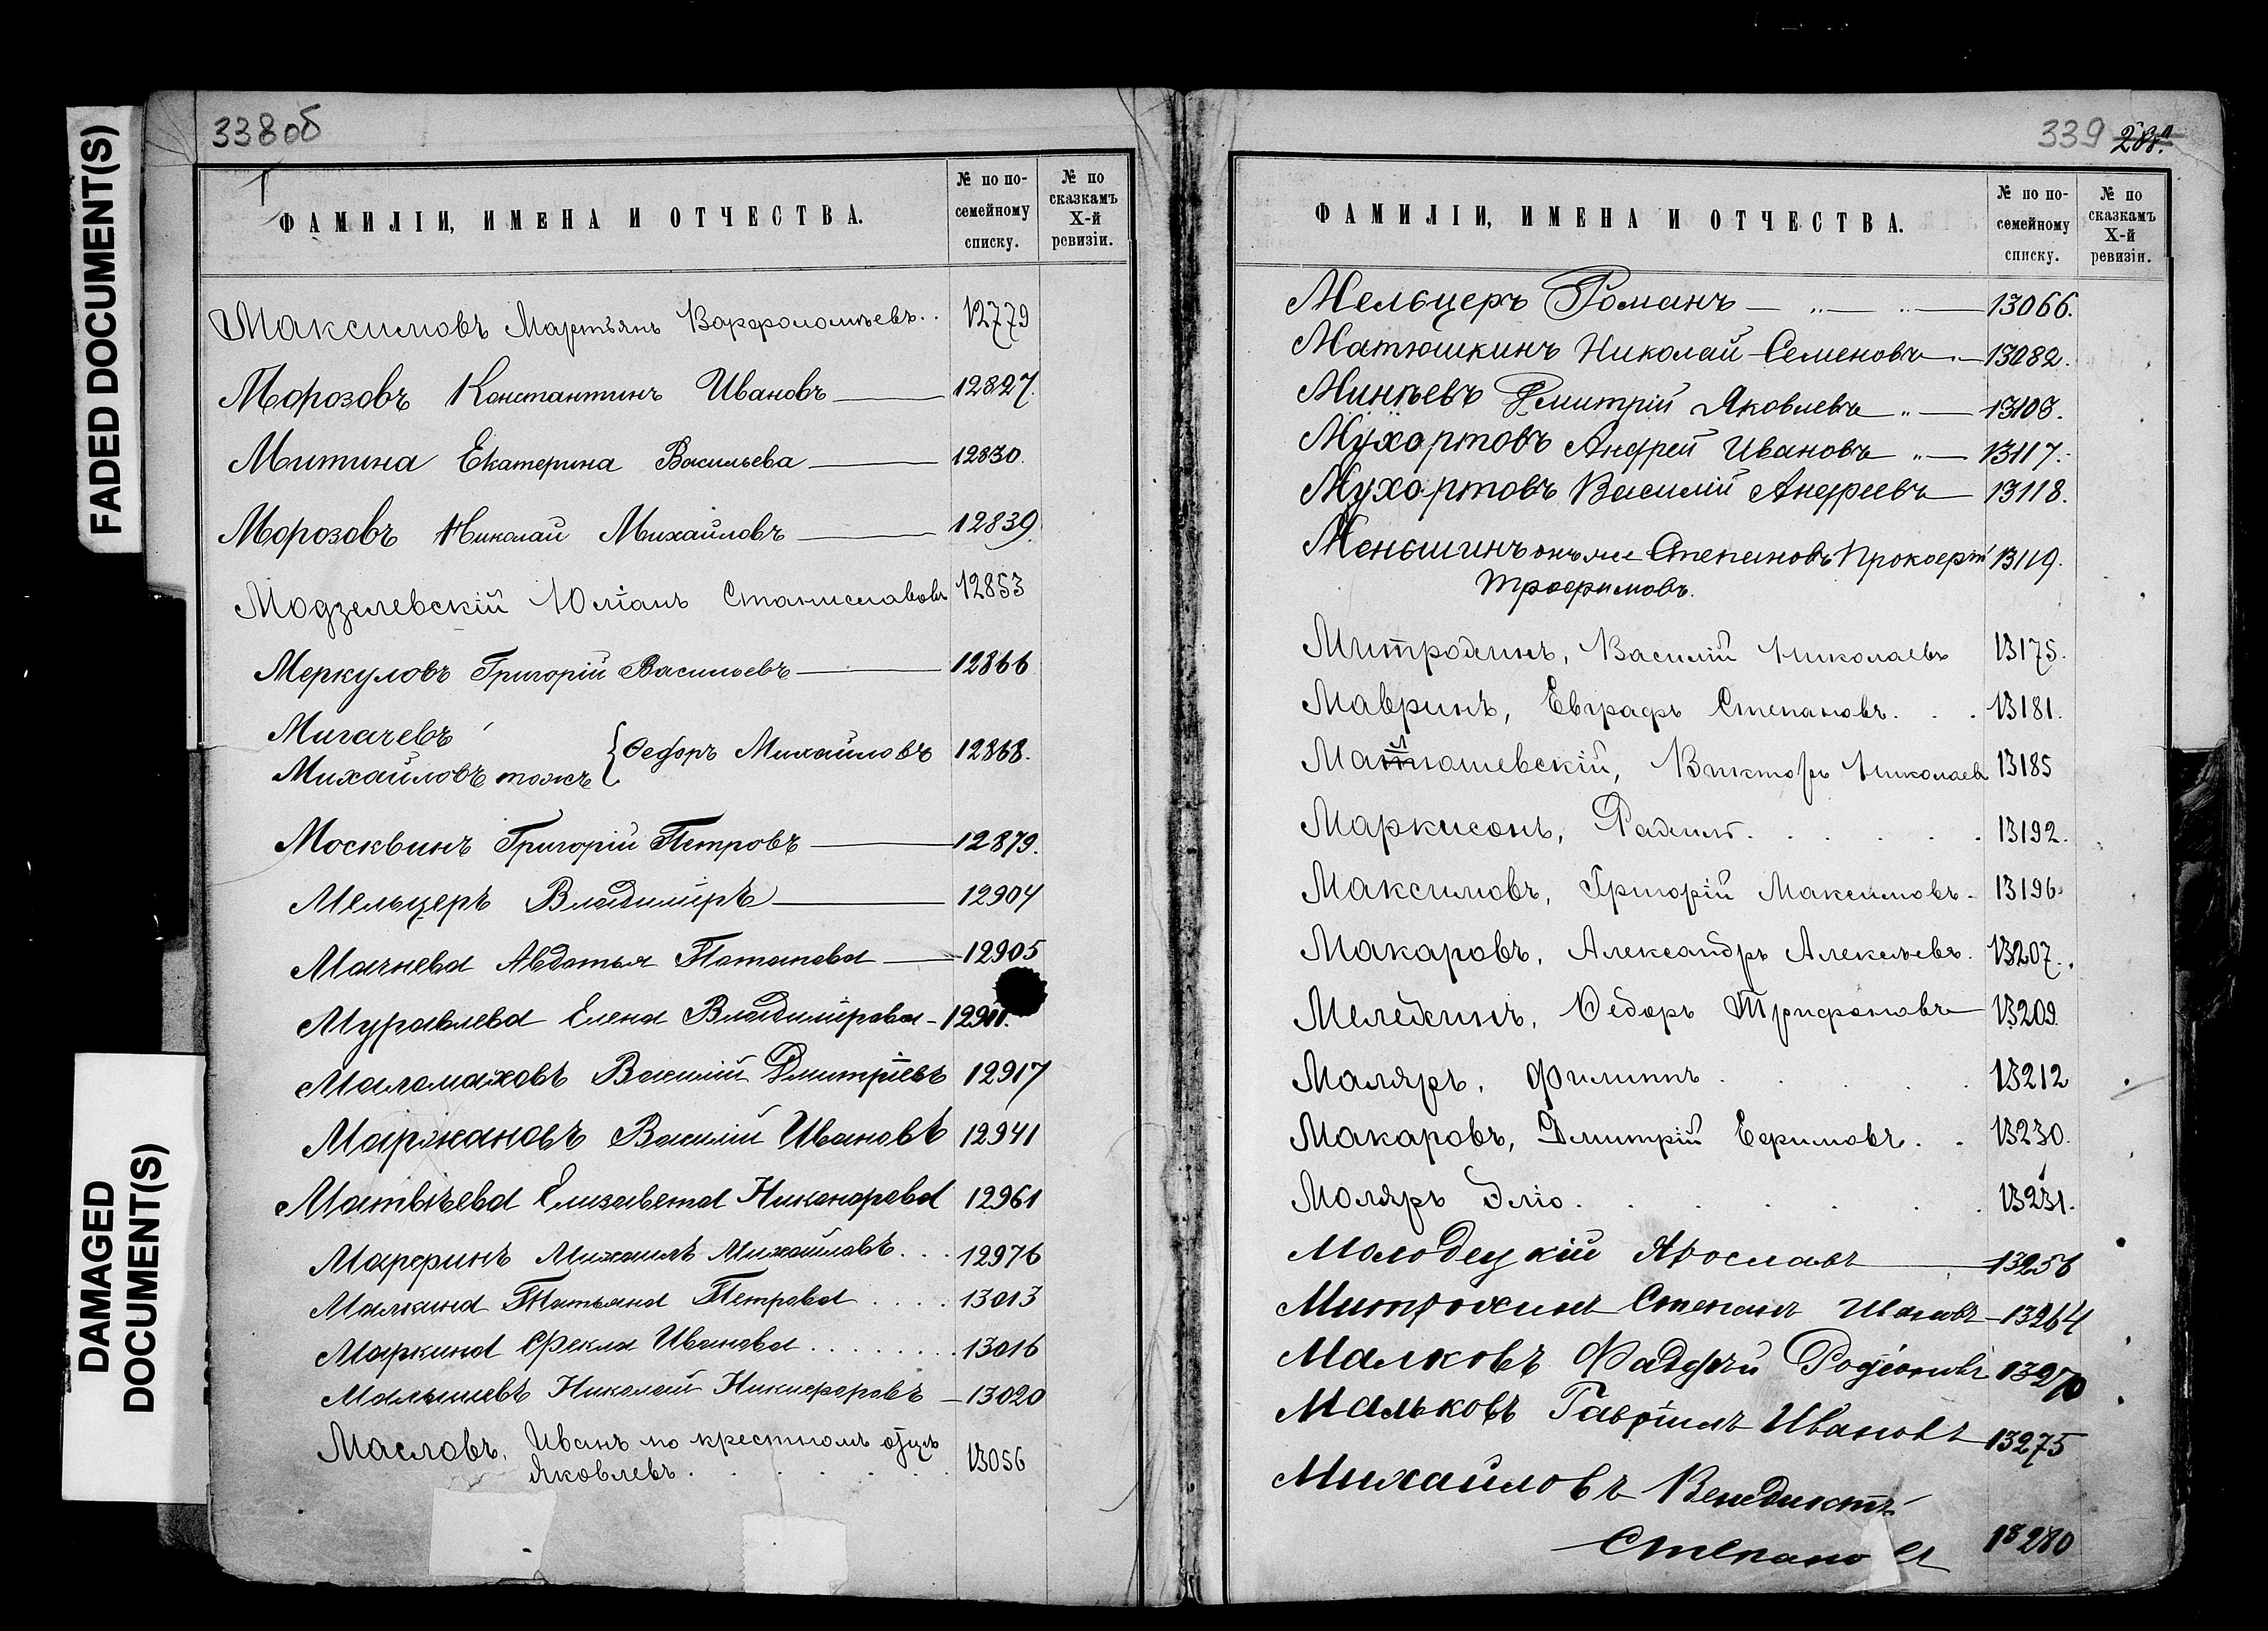 FADED DOCUMENT(S)
DAMAGED
DOCUMENT(S)
338об
ФАМИЛІИ, ИМЕНА И ОТЧЕСТВА.
№ по по-
семейному
списку.
№ по
сказкамъ
X-й
ревизіи.
Максимовъ Мартьянъ Варфоломѣевъ.. 12779
Морозовъ Константинъ Ивановъ — 12827.
Митина Екатерина Васильева — 12830.
Морозовъ Николай Михайловъ — 12839.
Модзелевскій Юліанъ Станиславовъ 12853
Меркуловъ Григорій Васильевъ — 12866
Мигачевъ
Михайловъ тожъ { Ѳедоръ Михайловъ 12868.
Москвинъ Григорій Петровъ — 12879.
Мельцеръ Владиміръ — 12904
Мачнева Авдотья Потапова — 12905
Муравлева Елена Владимірова -
Маломаховъ Василій Дмитріевъ 12917
Маржановъ Василій Ивановъ 12941
Матвѣева Елизавета Никанорова 12961
Марфинъ Михаилъ Михайловъ... 12976
Малкина Татьяна Петрова .... 13013
Маркина Фекла Иванова ........ 13016
Малышевъ Николай Никифоровъ — 13020
Масловъ, Иванъ по крестномъ отцѣ
Яковлевъ. . . . . . 13056
339
ФАМИЛІИ, ИМЕНА И ОТЧЕСТВА.
№ по по-
семейному
списку.
№ по
сказкамъ
X-й
ревизіи.
Мельцеръ Романъ — „ — „ — 13066.
Матюшкинъ Николай Семеновъ — 13082.
Минѣевъ Дмитрій Яковлевъ „ — 13108.
Мухортовъ Андрей Ивановъ „ — 13117.
Мухортовъ Василій Андреевъ — 13118.
Меньшинъ онъ же Степановъ Прокофій 13119.
Трофимовъ.
Митрохинъ, Василій Николаевъ 13175.
Мавринъ, Евграфъ Степановъ. . . 13181.
Викторъ Николаевъ 13185
Маркисонъ, . . . . . . 13192.
Максимовъ, Григорій Максимовъ. 13196.
Макаровъ, Александръ Алексѣевъ. 13207.
Мелехинъ, Ѳедоръ Трифоновъ — 13209.
Маляръ, Филиппъ . . . . . 13212
Макаровъ, Дмитрій Ефимовъ. . 13230.
Моляръ Эліо. . . . . . . 13231.
Молодецкій Ярославъ — 13256
Митрохинъ Степанъ Ивановъ — 13264
Малковъ Фаддей Родіоновъ 13270
Мальковъ Гавріилъ Ивановъ — 13275
Михайловъ Венедиктъ
13280